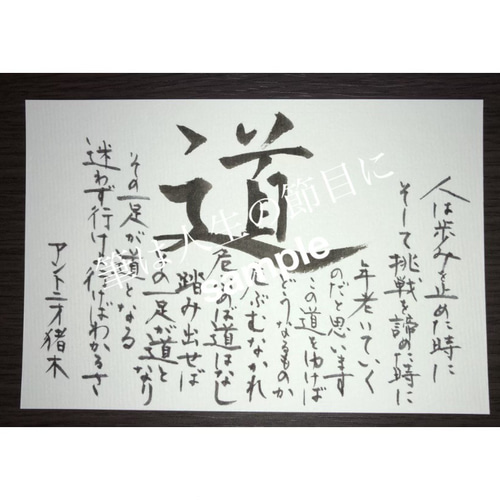 道
人は歩みを止めた時に
そして挑戦を諦めた時に
年老いていく
のだと思います
この道をゆけば
どうなるものか
危ぶむなかれ
危ぶめば道はなし
踏み出せば
その一足が道となり
その一足が道となる
迷わず行けよ行けばわかるさ
アントニオ猪木
筆は人生の節目に
sample